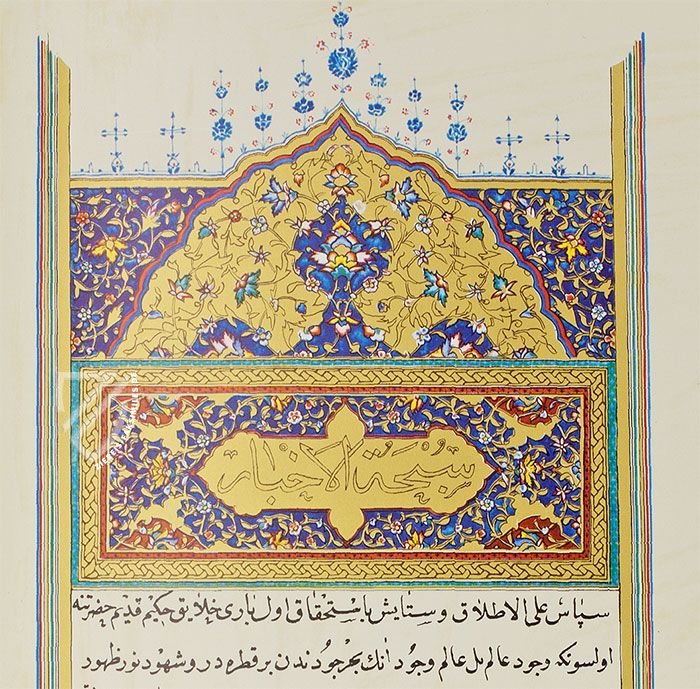 سُبْحَةُ الْاَخْبَار
سپاس علی الاطلاق و ستایش با استحقاق اول باری خلایق حکیم قدیم حضرتنه
اولسونکه وجود عالم بل عالم وجود انك بحر جودندن بر قطره در و شهود نور ظهور